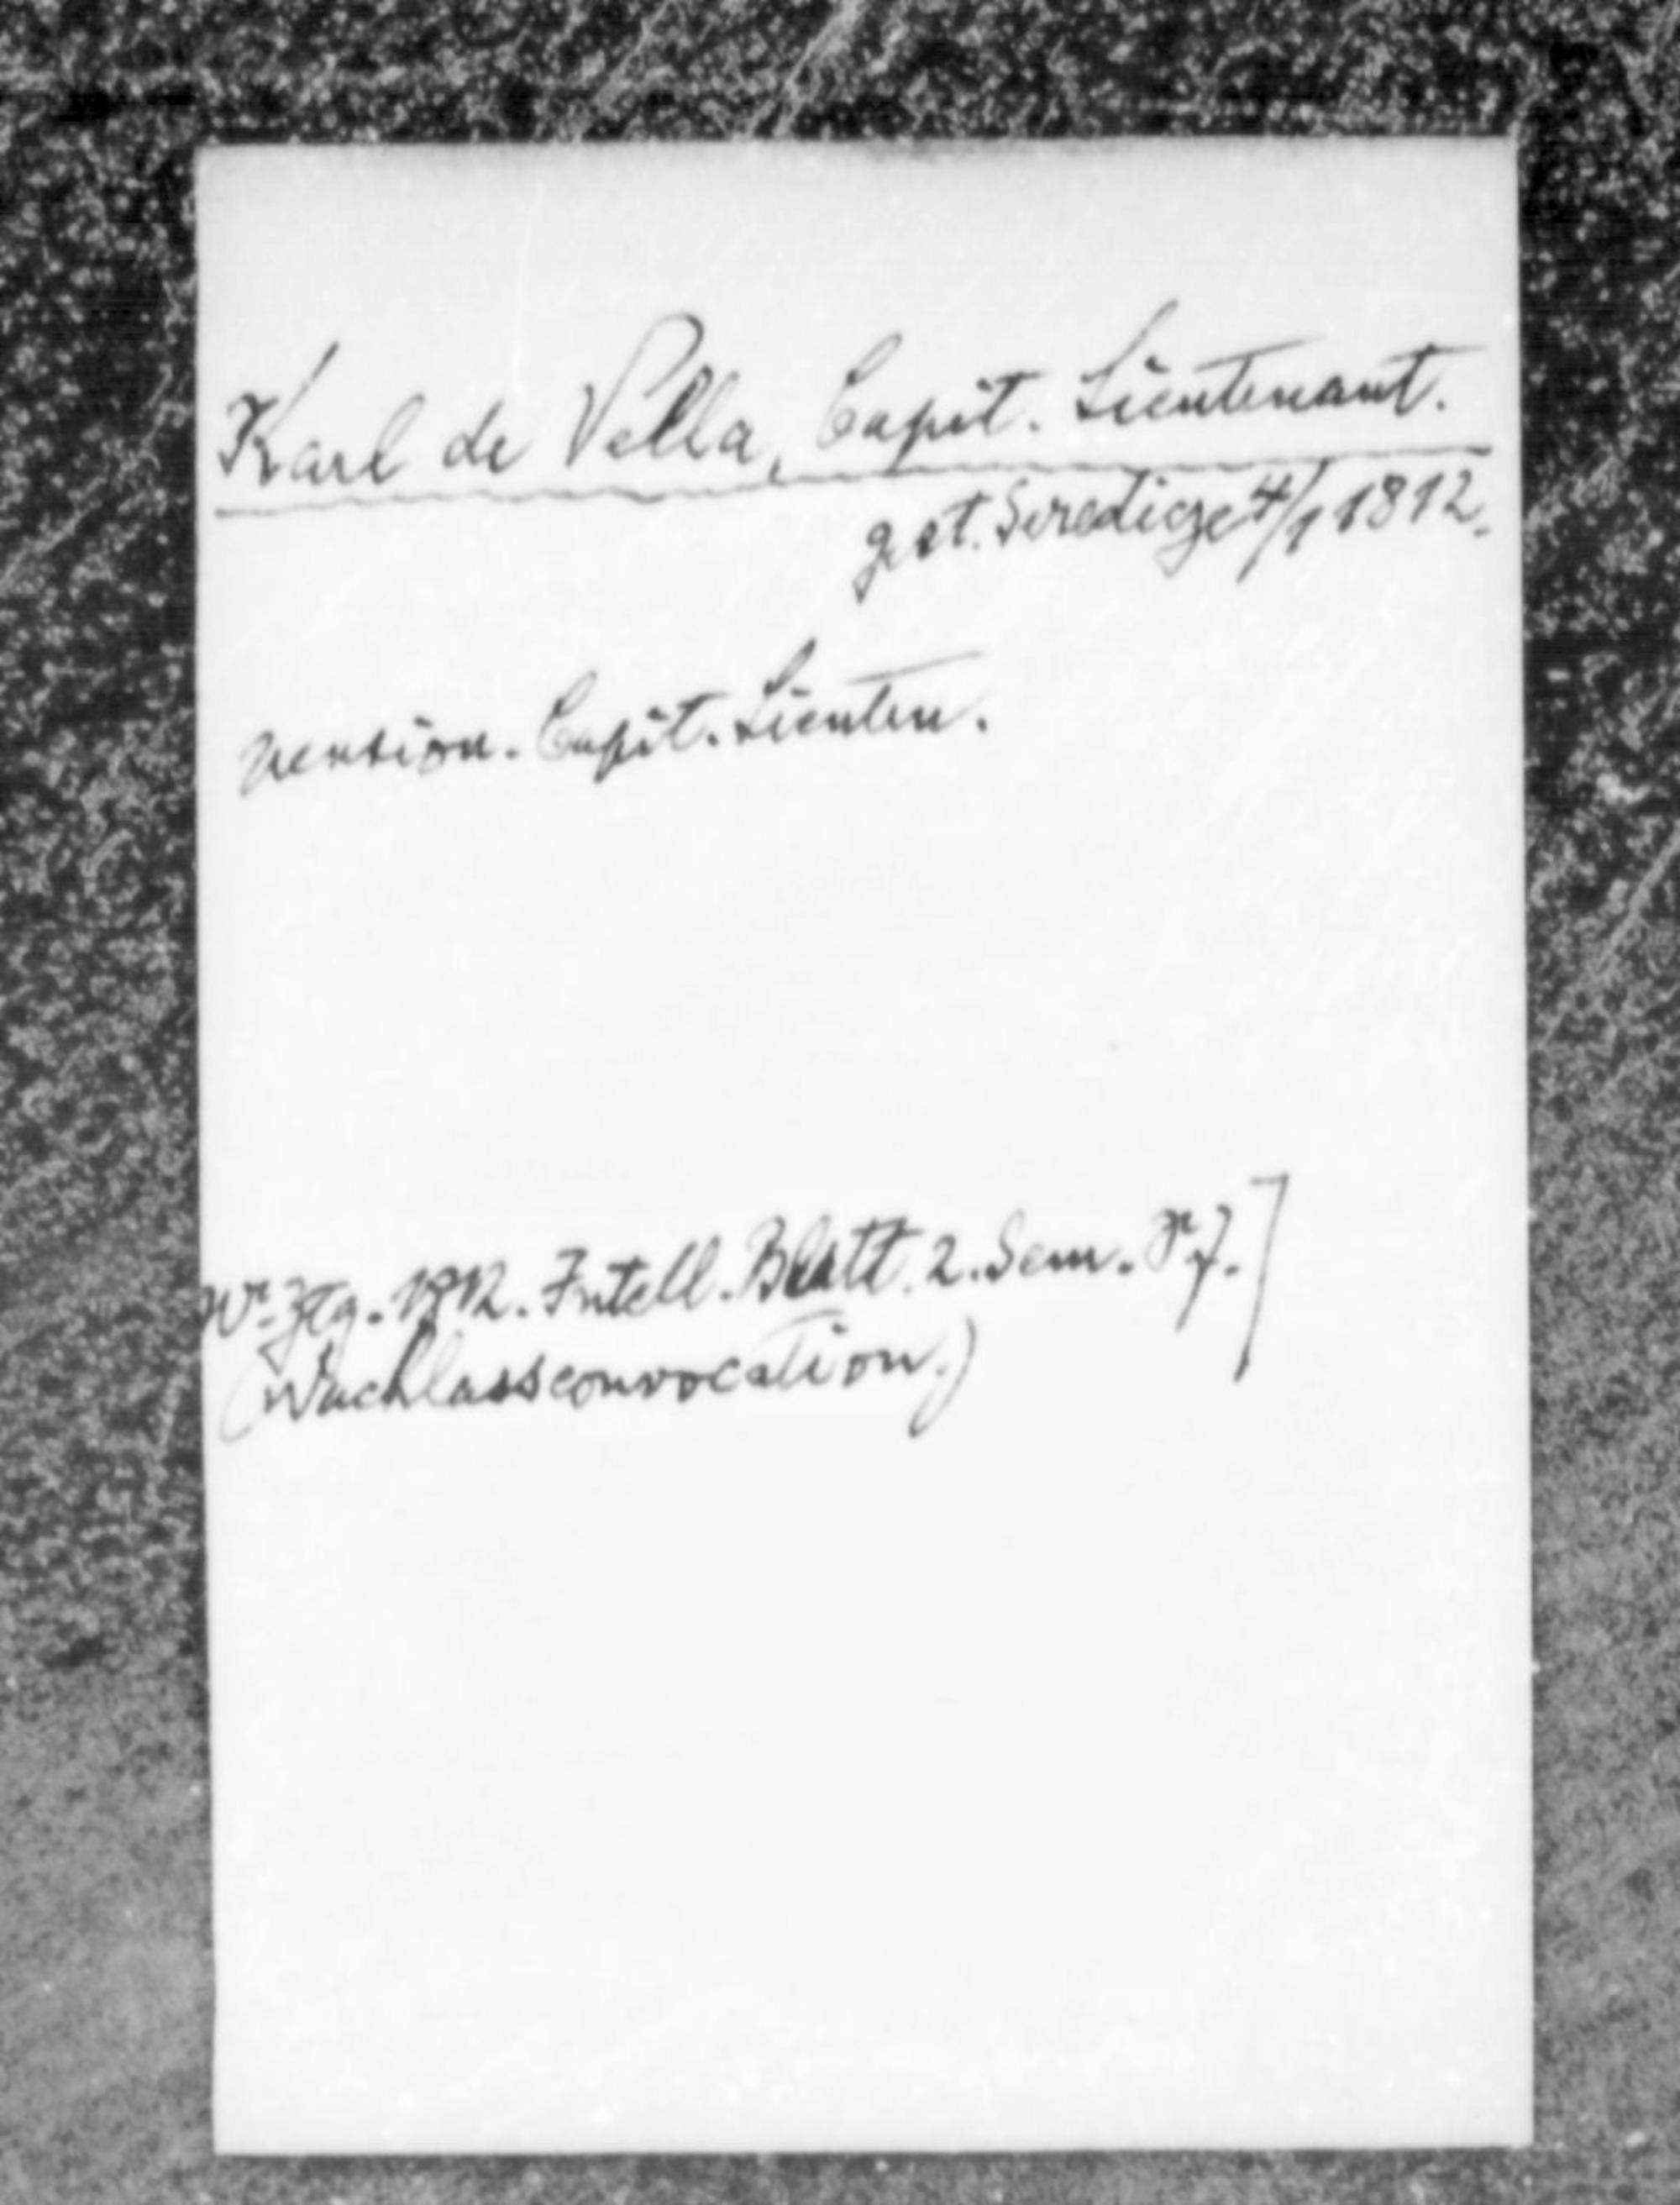 Karl de Vella, Capit. Lieutenant.
gest. Seredicze 4/1 1812.
pension. Capit. Lieuten.
Wr. Ztg. 1812. Intell. Blatt. 2. Sem. S. 7.]
(Nachlassconvocation.)